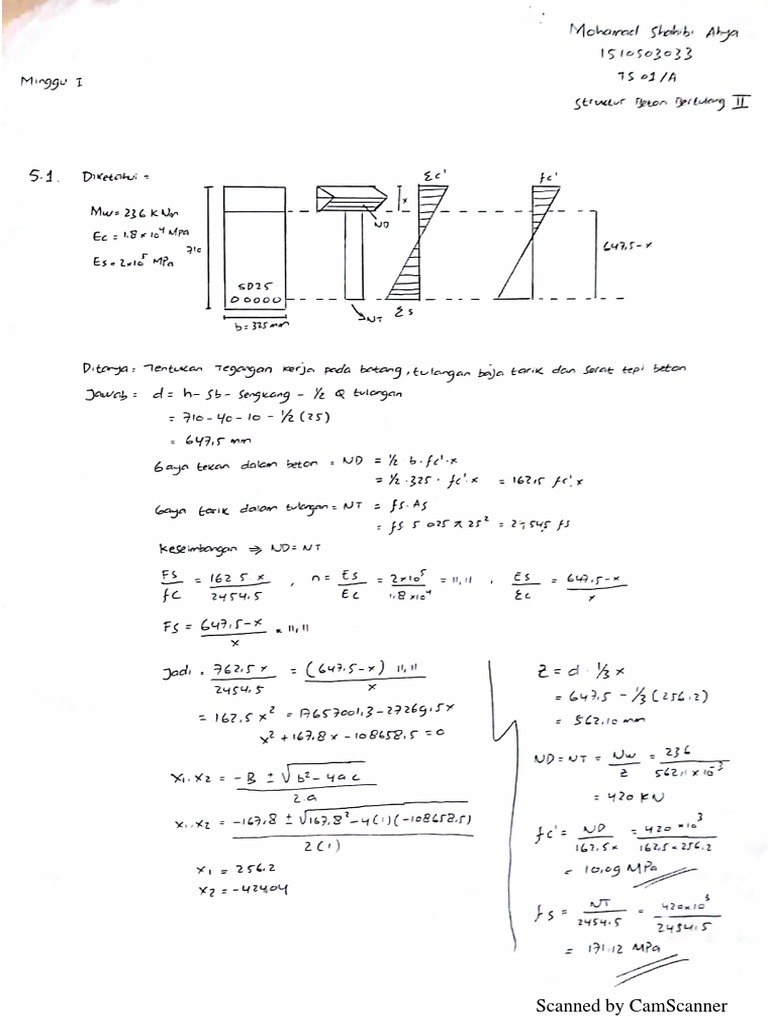 Mohamad Shahibi Ahya
1510503033
TS 01/A
Struktur Beton Bertulang II
Minggu I
5.1. Diketahui =
Mw = 236 kNm
Ec = 1.8 x 10⁴ MPa
Es = 2x10⁵ MPa
710
5D25
b = 325 mm
ND
NT
x
Σc'
Σs
fc'
647,5-x
Ditanya = Tentukan Tegangan kerja pada batang, tulangan baja tarik dan serat tepi beton
Jawab = d = h - Sb - Sengkang - 1/2 Q tulangan
= 710 - 40 - 10 - 1/2 (25)
= 647,5 mm
Gaya tekan dalam beton = ND = 1/2 b . fc' . x
= 1/2 . 325 . fc' . x = 162,5 fc' x
Gaya tarik dalam tulangan = NT = fs . As
= fs 5 025 π 25² = 2454,5 fs
Keseimbangan ⇒ ND = NT
Fs/fc = 162 5 x/2454.5 , n = Es/Ec = 2x10⁵/1.8x10⁴ = 11,11 , Σs/Σc = 647,5-x/x
Fs = 647,5-x/x x 11,11
Jadi = 762,5 x/2454,5 = (647,5-x) 11,11/x
= 162,5 x² = 17657001,3 - 27269,5x
x² + 167,8x - 108658,5 = 0
x₁.x₂ = -B ± √b²-4ac/2.a
x₁.x₂ = -167,8 ± √167,8² - 4(1)(-108658,5)/2(1)
x₁ = 256.2
x₂ = -42404
Z = d - 1/3 x
= 647,5 - 1/3 (256.2)
= 562,10 mm
ND = NT = Nw/Z = 236/562,1 x10⁻³
= 420 KN
fc' = ND/162,5x = 420 x10³/162,5 x 256.2
= 10,09 MPa
fs = NT/2454.5 = 420x10³/2454.5
= 171.12 MPa
Scanned by CamScanner